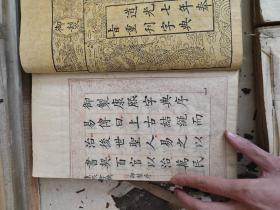 道光七年奉
旨重刊字典
御製康熙字典序
易傳曰上古結繩而
治後世聖人易之以
書契百官以治萬民